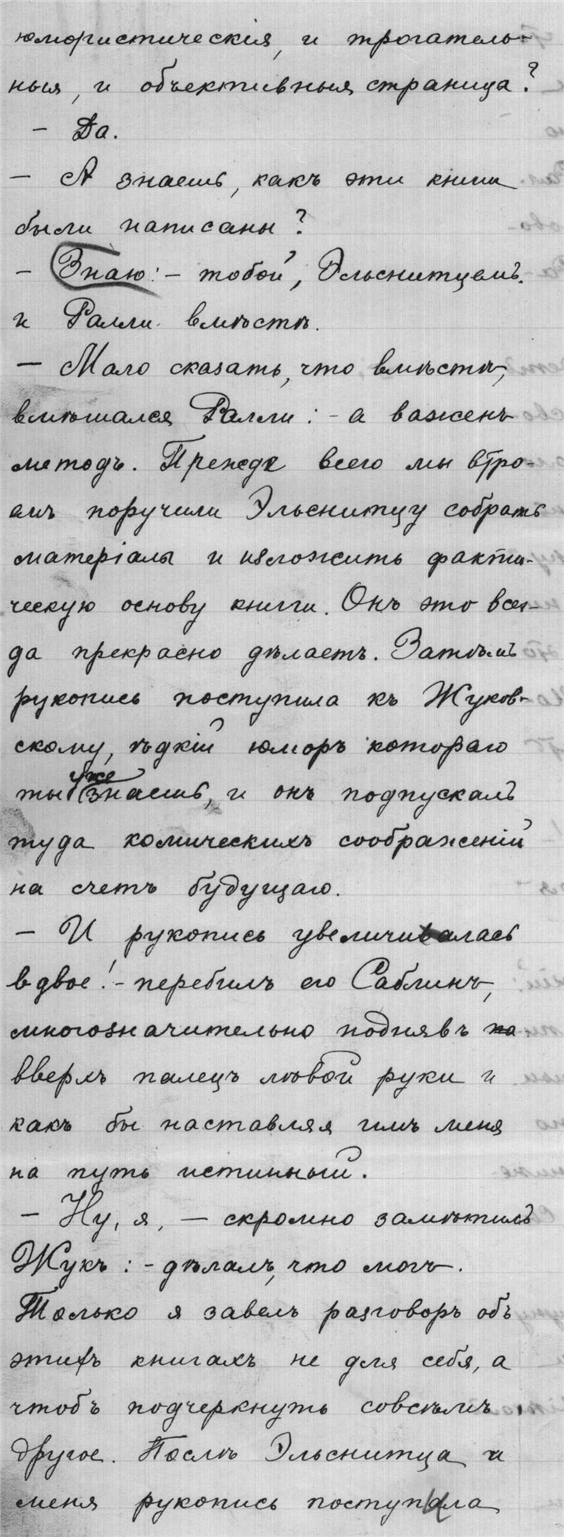 юмористическія, и трогатель-
ныя, и объективныя страницы?
— Да.
— А знаешь, какъ эти книги
были написаны?
— Знаю: — тобой, Эльснитцемъ
и Ралли вмѣстѣ.
— Мало сказать, что вмѣстѣ,
вмѣшался Ралли: — а важенъ
методъ. Прежде всего мы втро-
емъ поручили Эльснитцу собрать
матеріалы и изложить факти-
ческую основу книги. Онъ это все-
да прекрасно дѣлаетъ. Затѣмъ
рукопись поступила къ Жуков-
скому, ѣдкій юморъ котораго
ты уже знаешь, и онъ подпускалъ
туда комическихъ соображеній
на счетъ будущаго.
— И рукопись увеличивалась
вдвое! — перебилъ его Саблинъ,
многозначительно поднявъ на
вверхъ палецъ лѣвой руки и
какъ бы наставляя имъ меня
на путь истинный.
— Ну, я, — скромно замѣтилъ
Жукъ: — дѣлалъ, что могъ.
Только я завелъ разговоръ объ
этихъ книгахъ не для себя, а
чтобъ подчеркнуть совсѣмъ
другое. Послѣ Эльснитца и
меня рукопись поступала